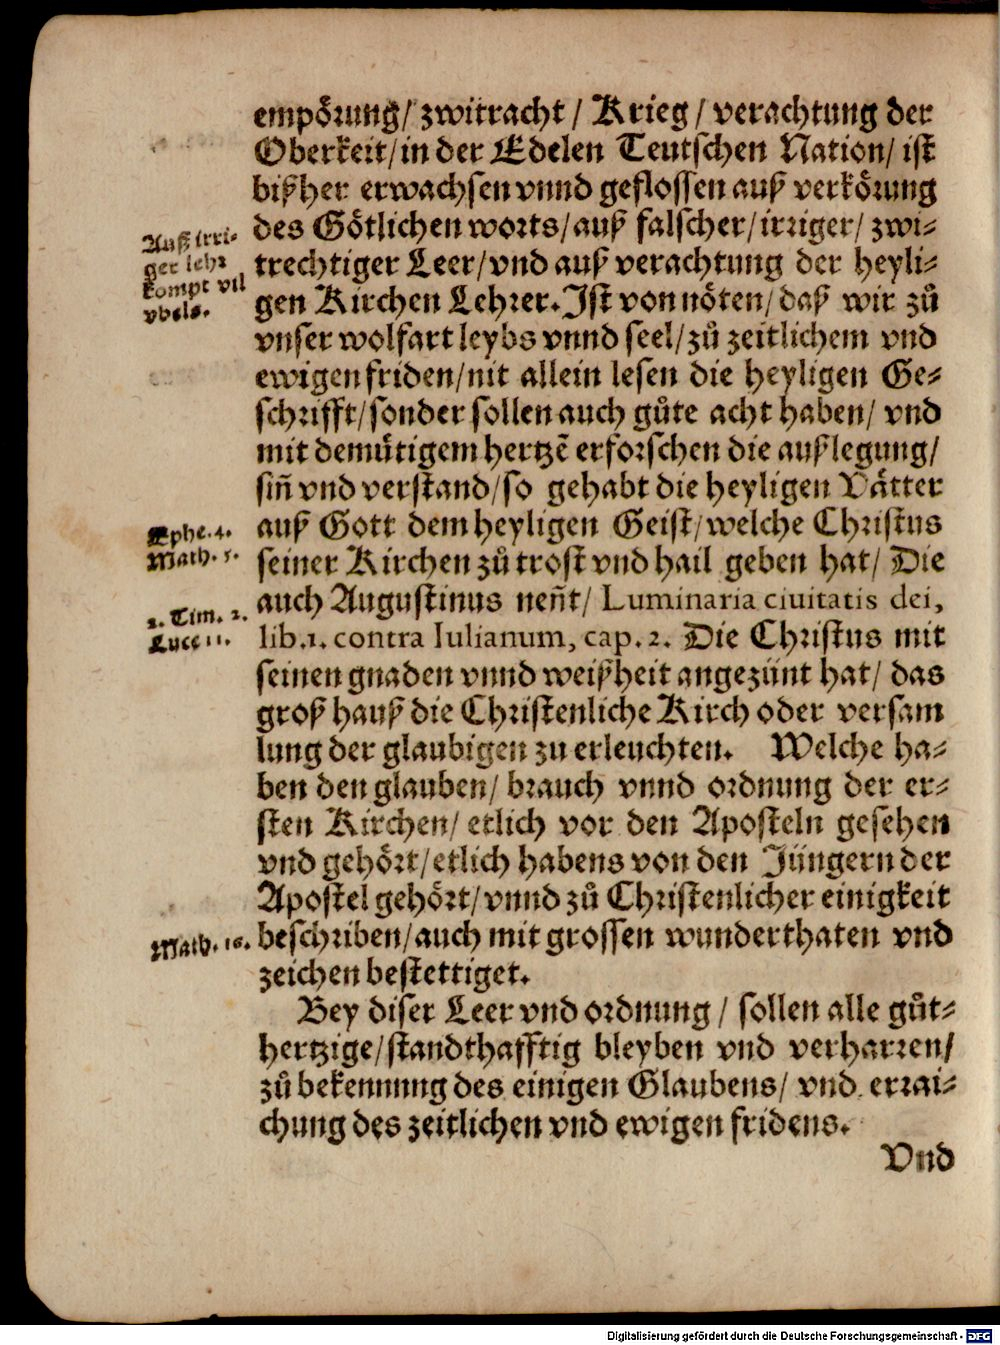 empoͤrung/ zwitracht / Krieg / verachtung der
Oberkeit/ in der Edelen Teutschen Nation/ ist
bißher erwachsen vnnd geflossen auß verkoͤrung
des Goͤtlichen worts/ auß falscher/ irriger/ zwi⸗
trechtiger Leer/ vnd auß verachtung der heyli⸗
gen Kirchen Lehrer. Ist von noͤten/ daß wir zuͦ
vnser wolfart leybs vnnd seel/ zuͦ zeitlichem vnd
ewigen friden/ nit allein lesen die heyligen Ge⸗
schrifft/ sonder sollen auch guͦte acht haben/ vnd
mit demuͤtigem hertzẽ erforschen die außlegung/
siñ vnd verstand/ so gehabt die heyligen Vaͤtter
auß Gott dem heyligen Geist/ welche Christus
seiner Kirchen zuͦ trost vnd hail geben hat/ Die
auch Augustinus neñt/ Luminaria ciuitatis dei,
lib.1. contra Iulianum, cap. 2. Die Christus mit
seinen gnaden vnnd weißheit angezünt hat/ das
groß hauß die Christenliche Kirch oder versam
lung der glaubigen zu erleuchten. Welche ha⸗
ben den glauben/ brauch vnnd ordnung der er⸗
sten Kirchen/ etlich vor den Aposteln gesehen
vnd gehoͤrt/ etlich habens von den Jüngern der
Apostel gehoͤrt/ vnnd zuͦ Christenlicher einigkeit
beschriben/ auch mit grossen wunderthaten vnd
zeichen bestettiget.
Bey diser Leer vnd ordnung / sollen alle guͦt⸗
hertzige/ standthafftig bleyben vnd verharren/
zuͦ bekennung des einigen Glaubens/ vnd errai⸗
chung des zeitlichen vnd ewigen fridens.
Vnd
Auß irri⸗
ger lehr
kompt vil
vbels.
Ephe. 4.
Math. 5.
2. Tim. 2.
Luce 11.
Math. 16.
Digitalisierung gefördert durch die Deutsche Forschungsgemeinschaft - DFG